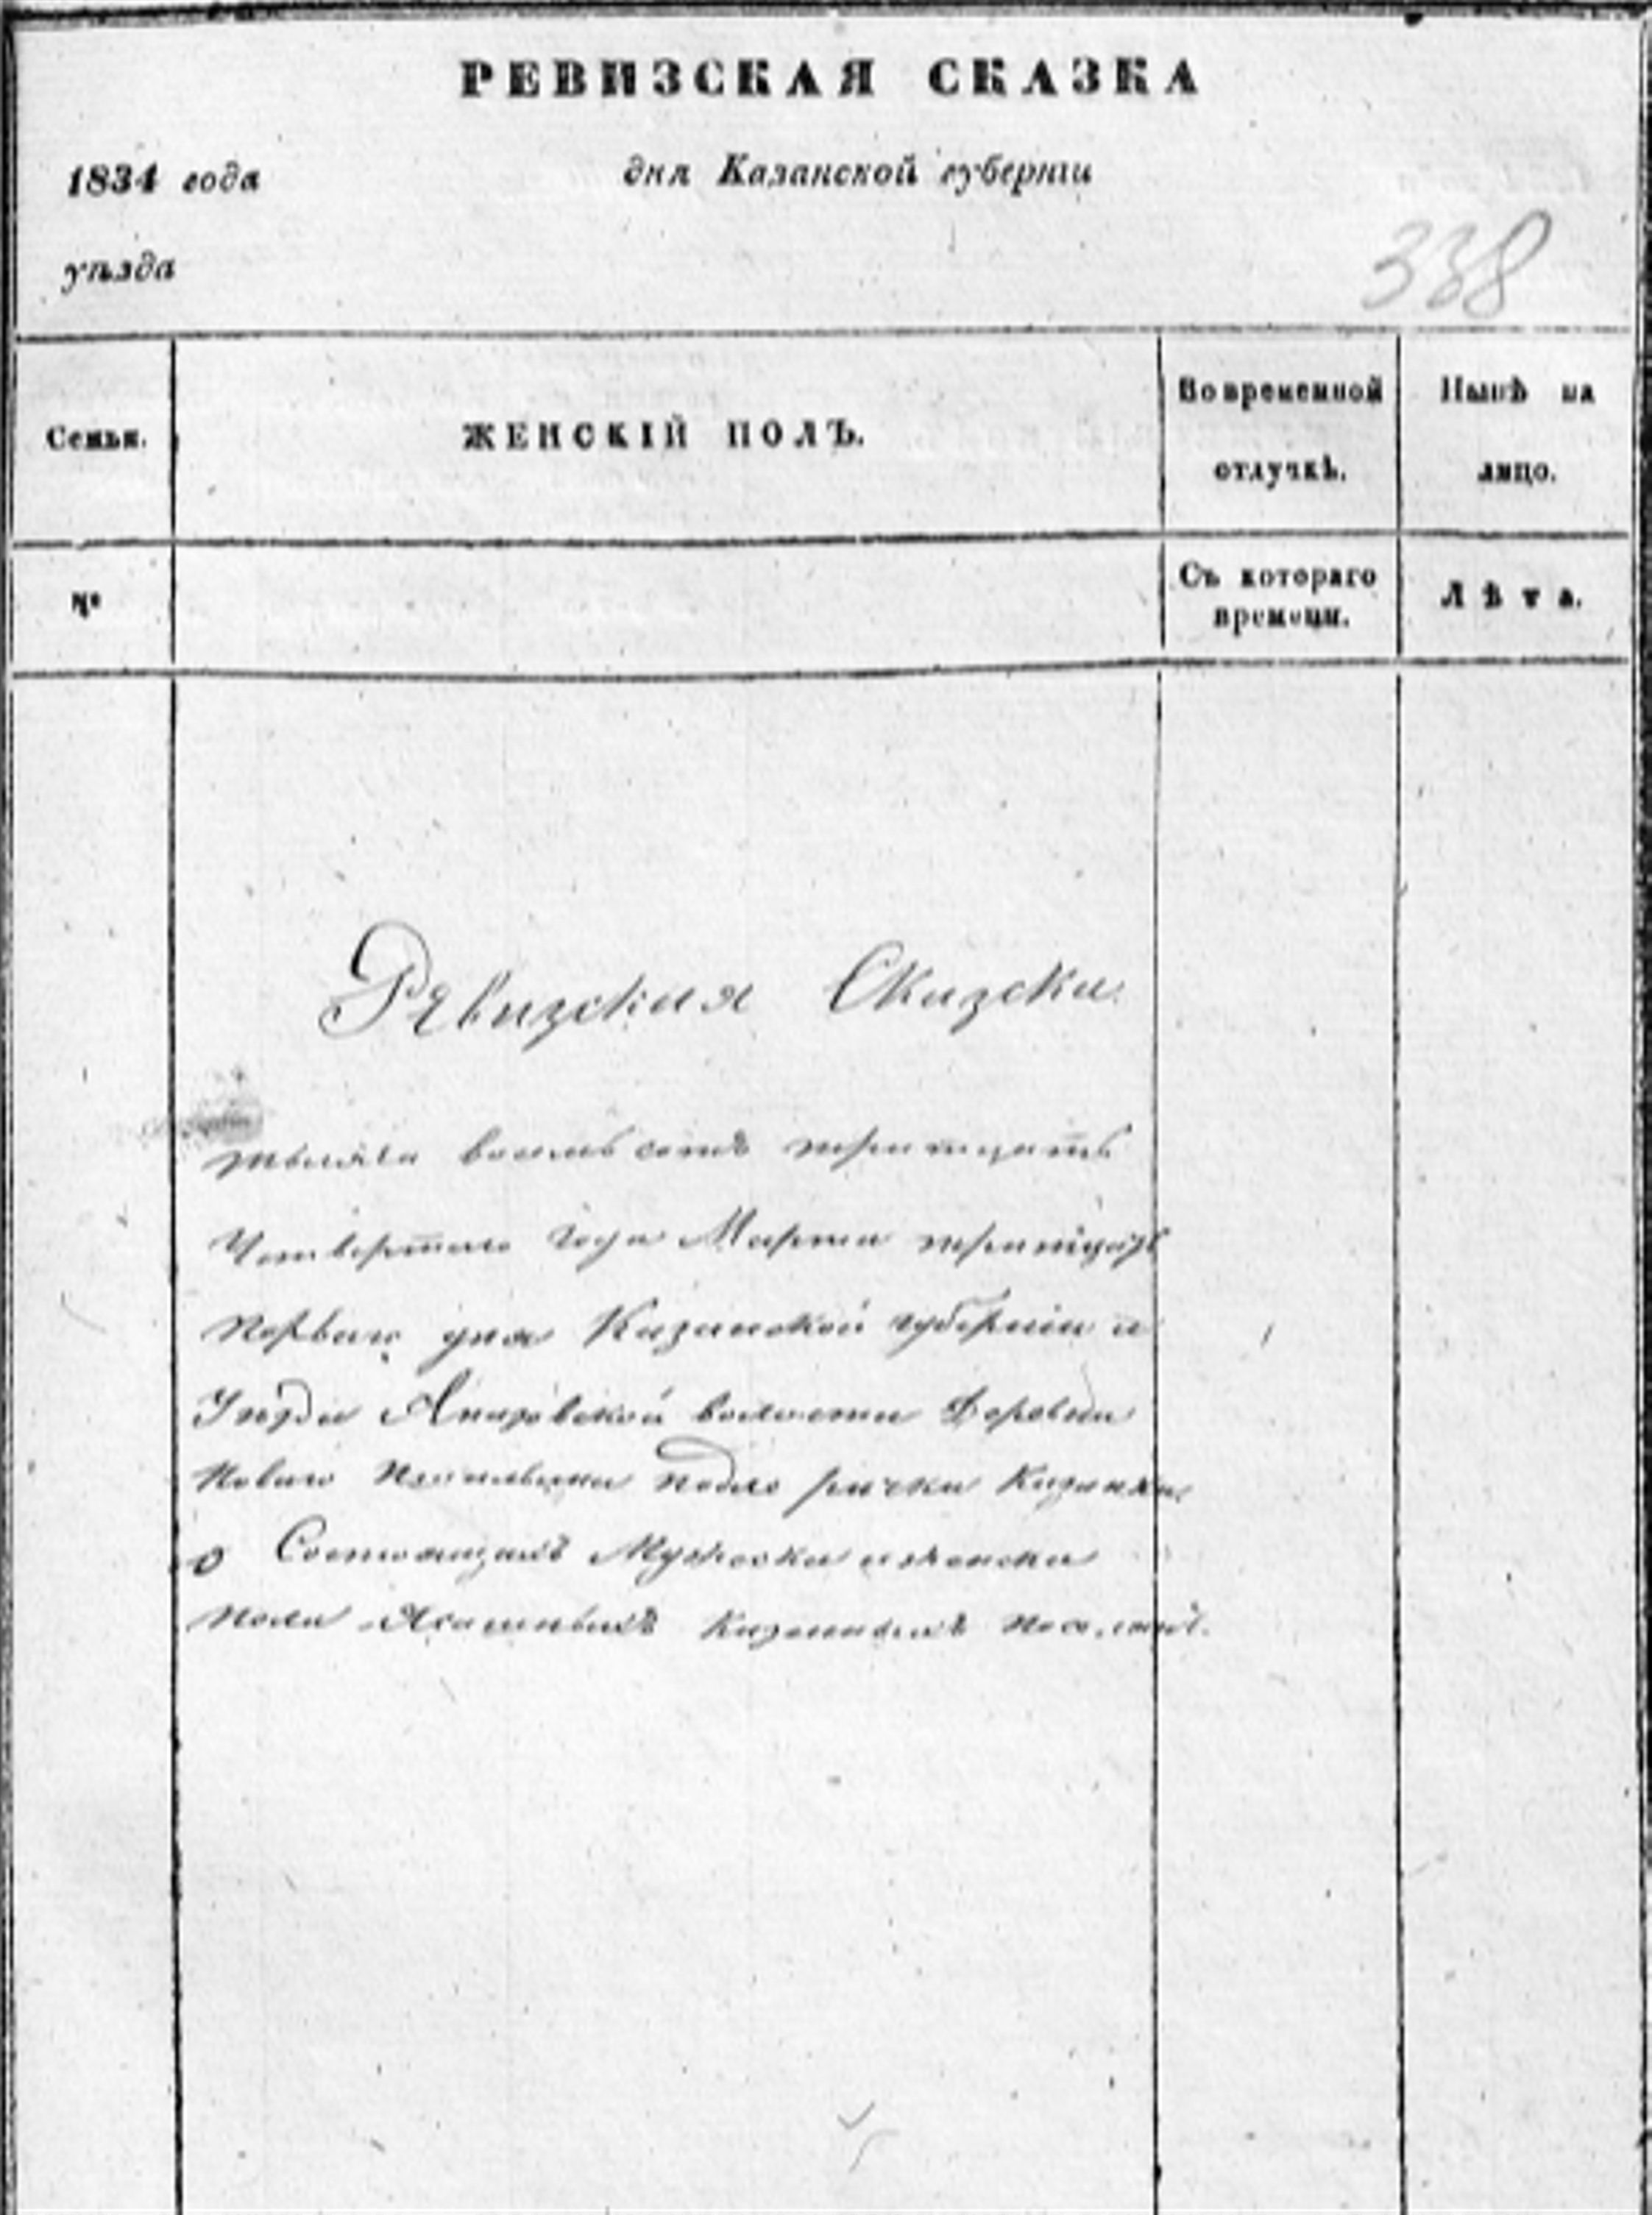 РЕВИЗСКАЯ СКАЗКА
1834 года дня Казанской губерніи
уѣзда
338
Семья. ЖЕНСКІЙ ПОЛЪ. Во временной отлучкѣ. Нынѣ на лицо.
№ Съ котораго времени. Лѣта.
Ревизская Сказска
тысяча восемь сотъ тритцать
Четвертаго года Марта тритцать
перваго дня Казанской губерніи и
Уезда волости Деревни
Новаго подле речки Казанки
о Состоящихъ Мужеска и женска
пола Ясашныхъ